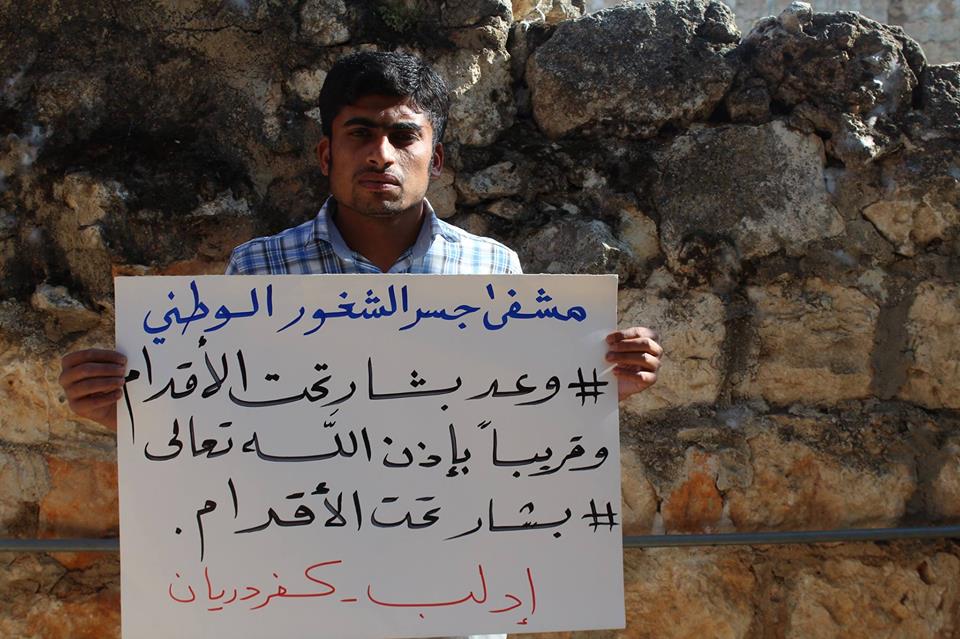 مشفى جسر الشغور الوطني
#وعد بشار تحت الأقدام
وقريباً بإذن اللّه تعالى
#بشار تحت الأقدام.
إدلب - كفردريان